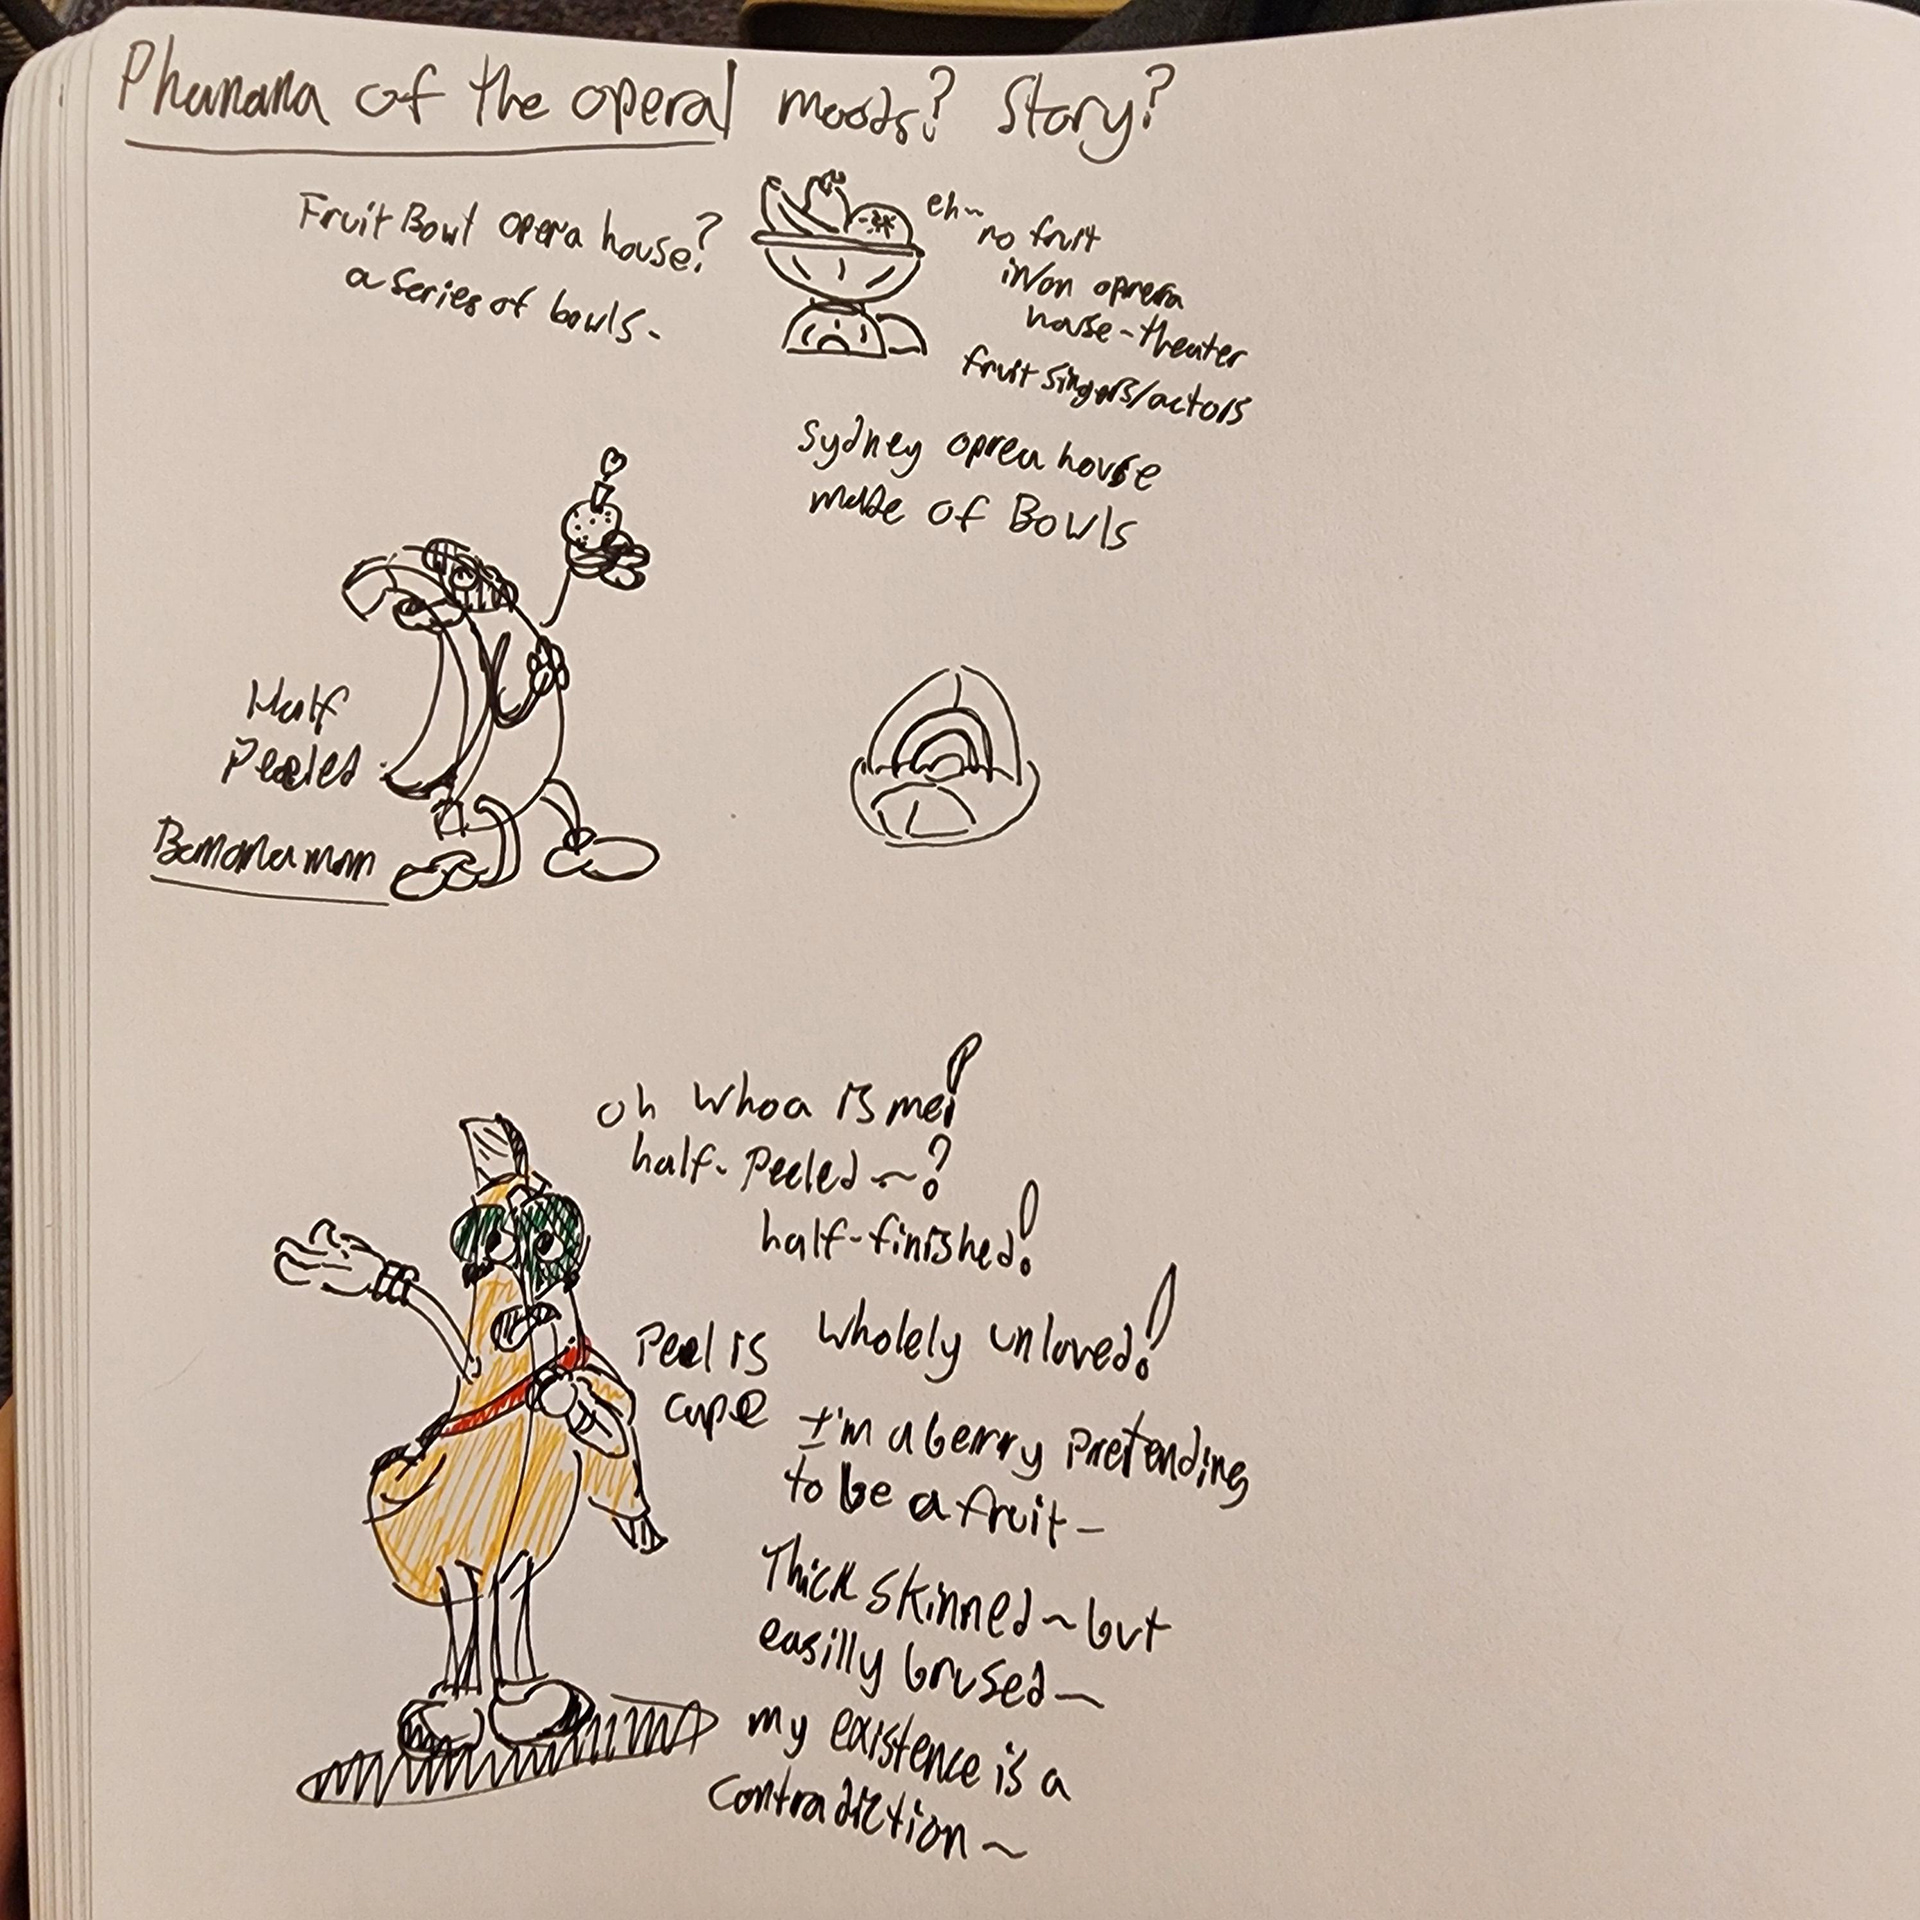 Phanana of the operal moods? Story?
Fruit Bowl opera house?
a series of bowls-
eh~
no fruit
in/on oprera
house-theater
fruit singers/actors
Sydney oprea house
made of Bowls
Half
Peeled
Bananaman
oh whoa is me!
half-peeled~?
half-finished!
Wholely unloved!
Peel is
cape
I'm a berry Pretending
to be a fruit-
Thick skinned~but
easilly brused~
my existence is a
contradiction~